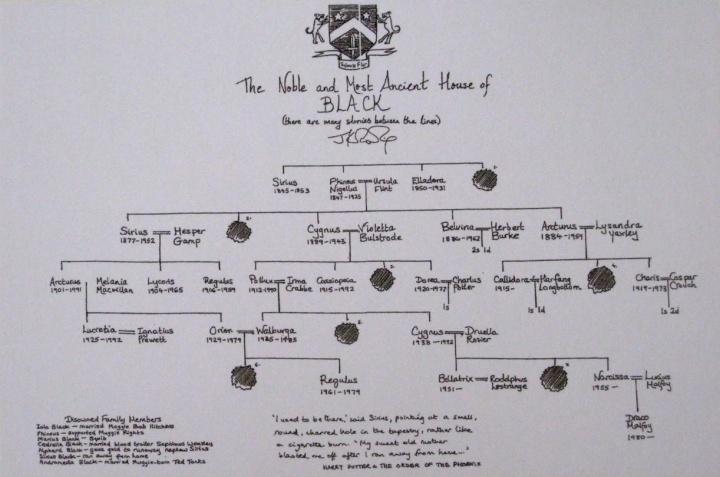 The Noble and Most Ancient House of
BLACK
(there are many stories between the lines)
Sirius
1845-1853
Phineas Nigellus
1847-1925
Ursula Flint
Elladora
1850-1931
Sirius
1877-1952
Hesper Gamp
Cygnus
1889-1943
Violetta Bulstrode
Belvina
1886-1962
Herbert Burke
2s 1d
Arcturus
1884-1959
Lysandra Yaxley
Arcturus
1901-1991
Melania Macmillan
Lycoris
1904-1965
Regulus
1906-1959
Pollux
1912-1990
Irma Crabbe
Cassiopeia
1915-1992
Dorea
1920-1977
Charlus Potter
1s
Callidora
1915-
Harfang Longbottom
1s 1d
Charis
1919-1973
Caspar Crouch
1s 2d
Lucretia
1925-1992
Ignatius Prewett
Orion
1929-1979
Walburga
1925-1985
Cygnus
1938-1992
Druella Rosier
Regulus
1961-1979
Bellatrix
1951-
Rodolphus Lestrange
Narcissa
1955-
Lucius Malfoy
Draco Malfoy
1980-
Disowned Family Members
Isla Black - married Muggle Bob Hitchens
Phineas - supported Muggle Rights
Marius Black - Squib
Cedrella Black - married blood traitor Septimus Weasley
Alphard Black - gave gold to runaway nephew Sirius
Sirius Black - ran away from home
Andromeda Black - married Muggle-born Ted Tonks
"I used to be there," said Sirius, pointing at a small,
round, charred hole in the tapestry, rather like
a cigarette burn. "My sweet old mother
blasted me off after I ran away from home--"
HARRY POTTER & THE ORDER OF THE PHOENIX